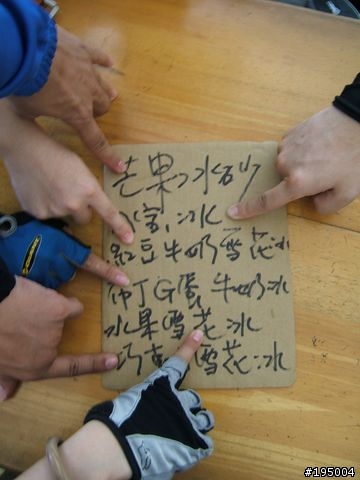 芒果冰砂
八宝冰
紅豆牛奶雪花冰
布丁G蛋牛奶冰
水果雪花冰
巧克雪花冰
#195004